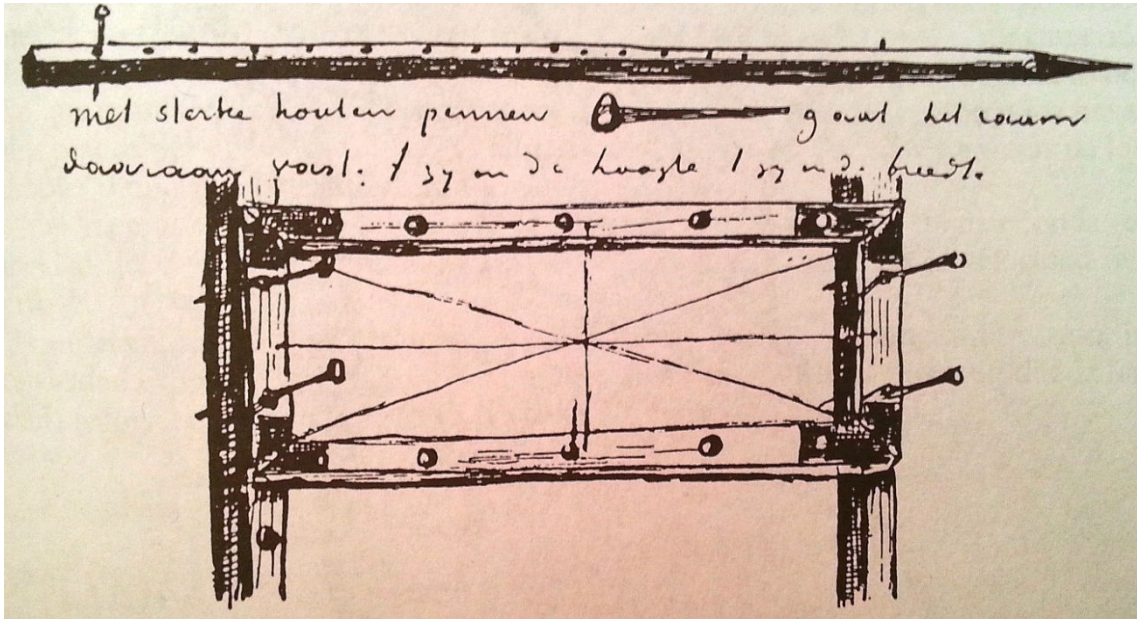 met sterke houten pennen gaat het raam
daaraan vast. 't zy in de hoogte 't zy in de breedte.